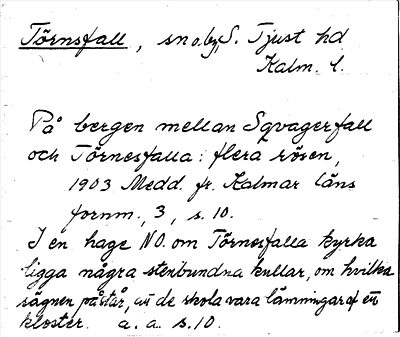 Törnsfall, sn o. by, S. Tjust hd
Kalm. l.
På bergen mellan Sqvagerfall
och Törnesfalla: flera rösen,
1903 Medd. fr. Kalmar läns
fornm., 3, s. 10.
I en hage NO. om Törnesfalla kyrka
ligga några stenbundna kullar, om hvilka
sägnen påstår, att de skola vara lämningar af ett
kloster. a. a. s. 10.